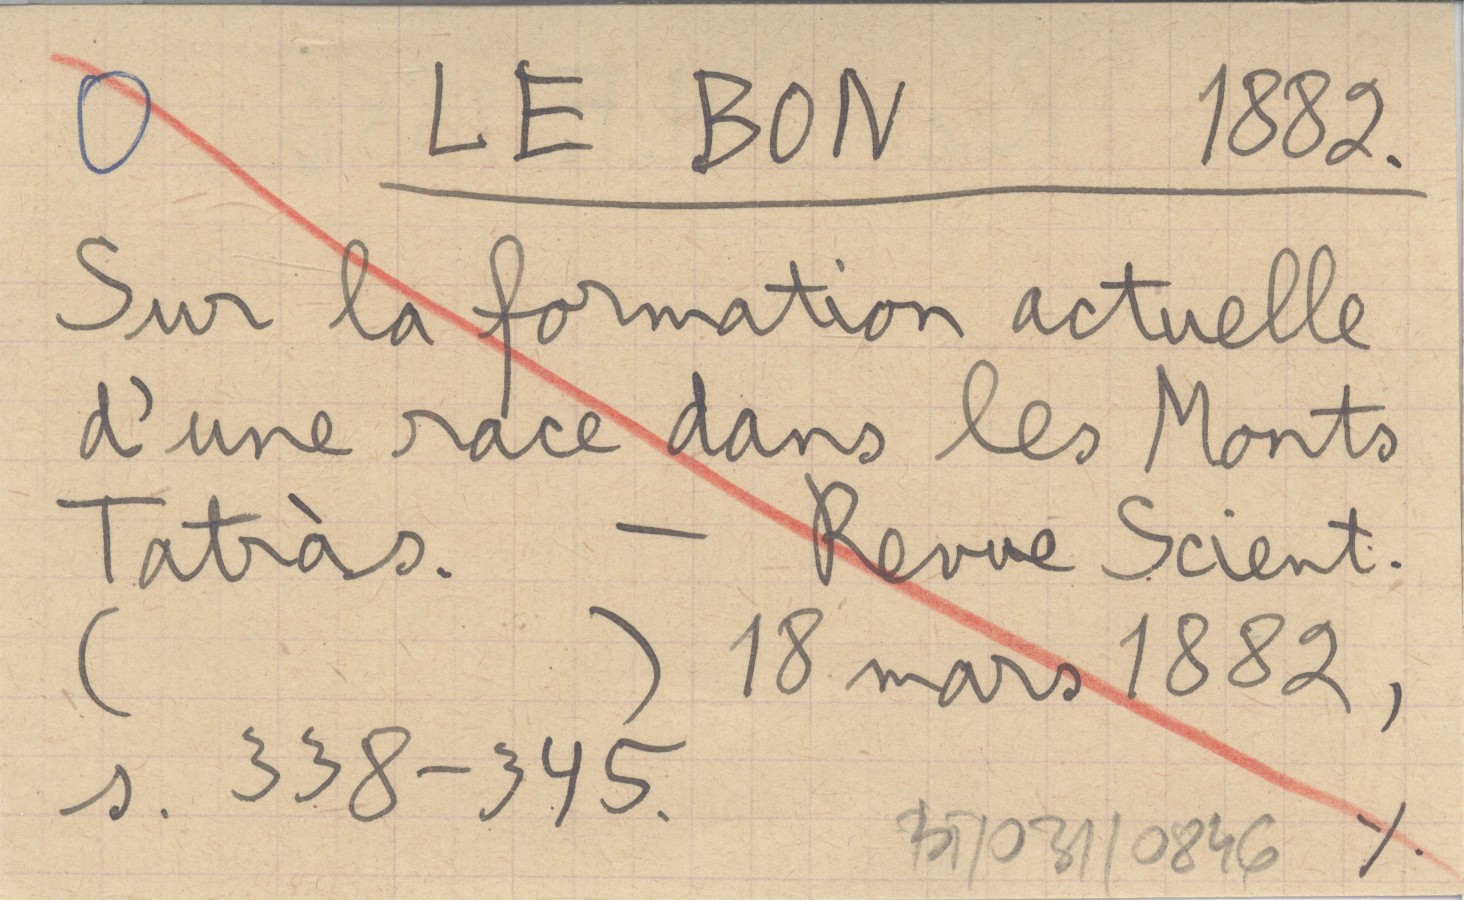 O LE BON 1882.
Sur la formation actuelle
d'une race dans les Monts
Tatràs. — Revue Scient.
( ) 18 mars 1882,
s. 338-345.
./.